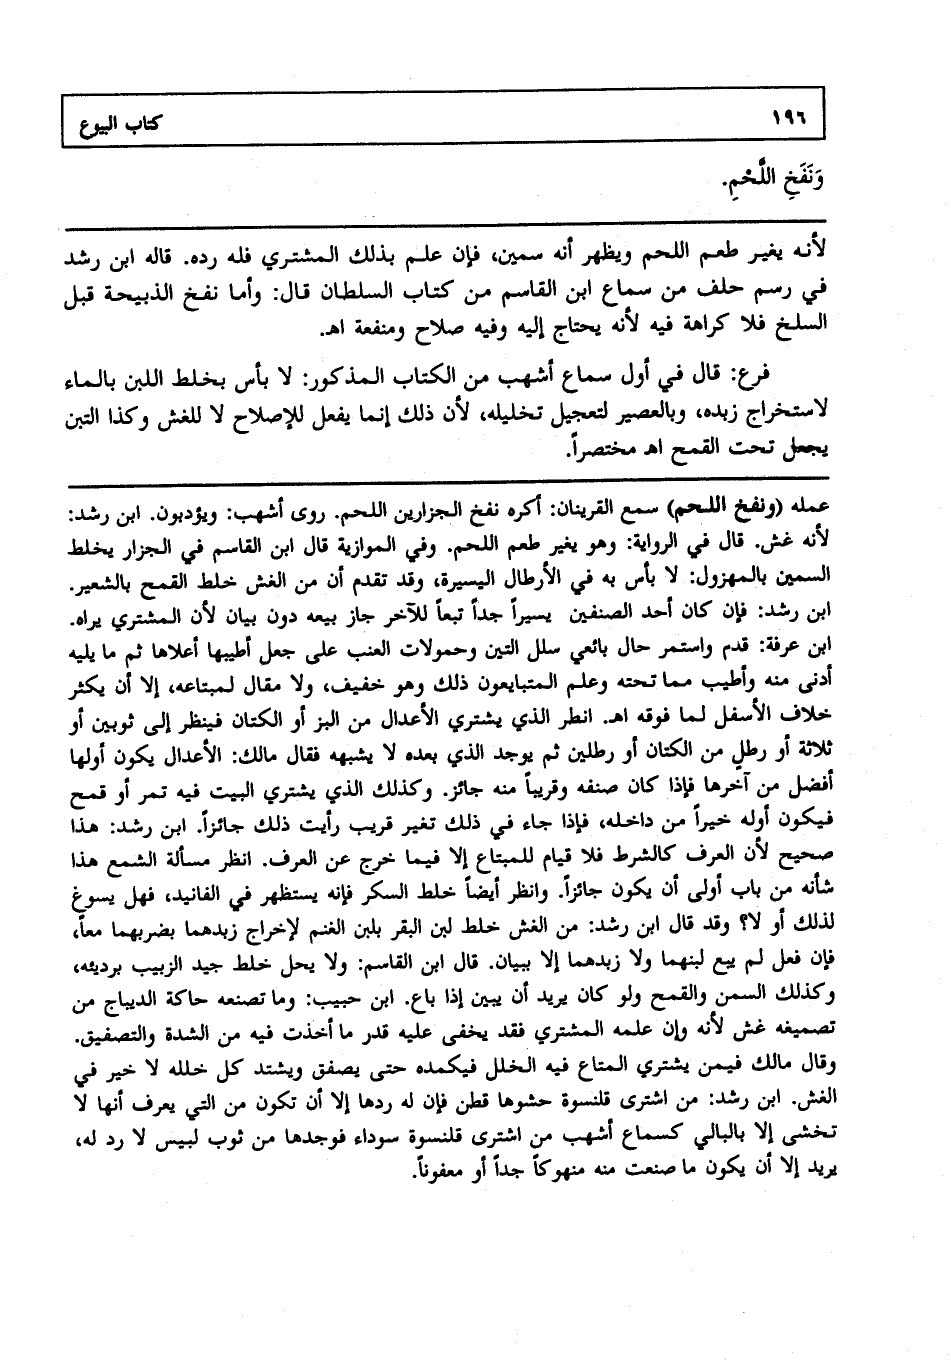 ١٩٦ كتاب البيوع
وَنَفَخِ اللَّحْمِ.
لأنه يغير طعم اللحم ويظهر أنه سمين، فإن علم بذلك المشتري فله رده. قاله ابن رشد
في رسم حلف من سماع ابن القاسم من كتاب السلطان قال: وأما نفخ الذبيحة قبل
السلخ فلا كراهة فيه لأنه يحتاج إليه وفيه صلاح ومنفعة اهـ.
فرع: قال في أول سماع أشهب من الكتاب المذكور: لا بأس بخلط اللبن بالماء
لاستخراج زبده، وبالعصير لتعجيل تخليله، لأن ذلك إنما يفعل للإصلاح لا للغش وكذا التبن
يجعل تحت القمح اهـ مختصراً.
عمله (ونفخ اللحم) سمع القرينان: أكره نفخ الجزارين اللحم. روى أشهب: ويؤدبون. ابن رشد:
لأنه غش. قال في الرواية: وهو يغير طعم اللحم. وفي الموازية قال ابن القاسم في الجزار يخلط
السمين بالمهزول: لا بأس به في الأرطال اليسيرة، وقد تقدم أن من الغش خلط القمح بالشعير.
ابن رشد: فإن كان أحد الصنفين يسيراً جداً تبعاً للآخر جاز بيعه دون بيان لأن المشتري يراه.
ابن عرفة: قدم واستمر حال بائعي سلل التين وحمولات العنب على جعل أطيبها أعلاها ثم ما يليه
أدنى منه وأطيب مما تحته وعلم المتبايعون ذلك وهو خفيف، ولا مقال لمبتاعه، إلا أن يكثر
خلاف الأسفل لما فوقه اهـ. انظر الذي يشتري الأعدال من البز أو الكتان فينظر إلى ثوبين أو
ثلاثة أو رطلٍ من الكتان أو رطلين ثم يوجد الذي بعده لا يشبهه فقال مالك: الأعدال يكون أولها
أفضل من آخرها فإذا كان صنفه وقريباً منه جائز. وكذلك الذي يشتري البيت فيه تمر أو قمح
فيكون أوله خيراً من داخله، فإذا جاء في ذلك تغير قريب رأيت ذلك جائزاً. ابن رشد: هذا
صحيح لأن العرف كالشرط فلا قيام للمبتاع إلا فيما خرج عن العرف. انظر مسألة الشمع هذا
شأنه من باب أولى أن يكون جائزاً. وانظر أيضاً خلط السكر فإنه يستظهر في الفانيد، فهل يسوغ
لذلك أو لا؟ وقد قال ابن رشد: من الغش خلط لبن البقر بلبن الغنم لإخراج زبدهما بضربهما معاً،
فإن فعل لم يبع لبنهما ولا زبدهما إلا ببيان. قال ابن القاسم: ولا يحل خلط جيد الزبيب برديئه،
وكذلك السمن والقمح ولو كان يريد أن يبين إذا باع. ابن حبيب: وما تصنعه حاكة الديباج من
تصميغه غش لأنه وإن علمه المشتري فقد يخفى عليه قدر ما أخذت فيه من الشدة والتصفيق.
وقال مالك فيمن يشتري المتاع فيه الخلل فيكمده حتى يصفق ويشتد كل خلله لا خير في
الغش. ابن رشد: من اشترى قلنسوة حشوها قطن فإن له ردها إلا أن تكون من التي يعرف أنها لا
تخشى إلا بالبالي كسماع أشهب من اشترى قلنسوة سوداء فوجدها من ثوب لبيس لا رد له،
يريد إلا أن يكون ما صنعت منه منهوكاً جداً أو معفوناً.